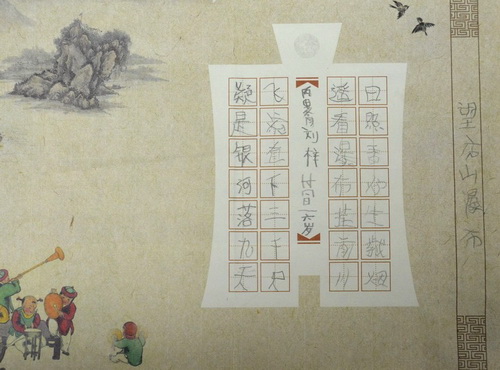 望庐山瀑布
日照香炉生紫烟
遥看瀑布挂前川
刘梓 六岁
飞流直下三千尺
疑是银河落九天